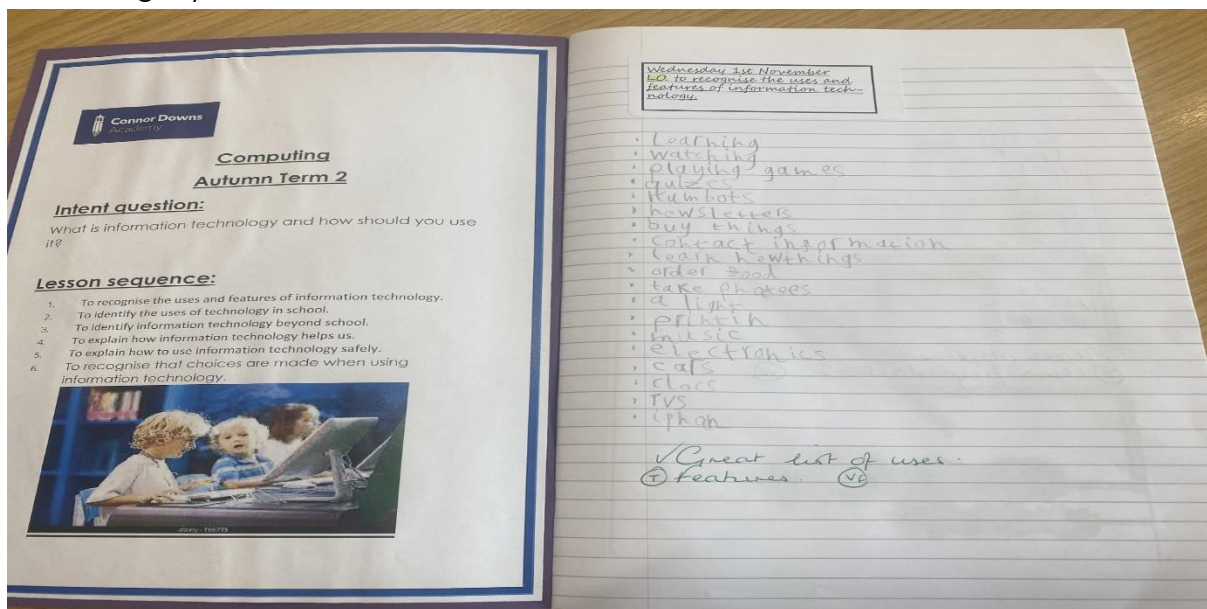 Connor Downs
Academy
Computing
Autumn Term 2
Intent question:
What is information technology and how should you use
it?
Lesson sequence:
1. To recognise the uses and features of information technology.
2. To identify the uses of technology in school.
3. To identify information technology beyond school.
4. To explain how information technology helps us.
5. To explain how to use information technology safely.
6. To recognise that choices are made when using
information technology.
Wednesday 1st November
LO. to recognise the uses and
features of information tech-
nology.
• Learning
• watching
• playing games
• quizes
• Numbots
• newsletters
• buy things
• contact information
• learn newthings
• order food
• take photoes
• a light
• printin
• music
• electronics
• cars
• clocs
• TVS
• iphan
✓ Great list of uses.
T features. VF